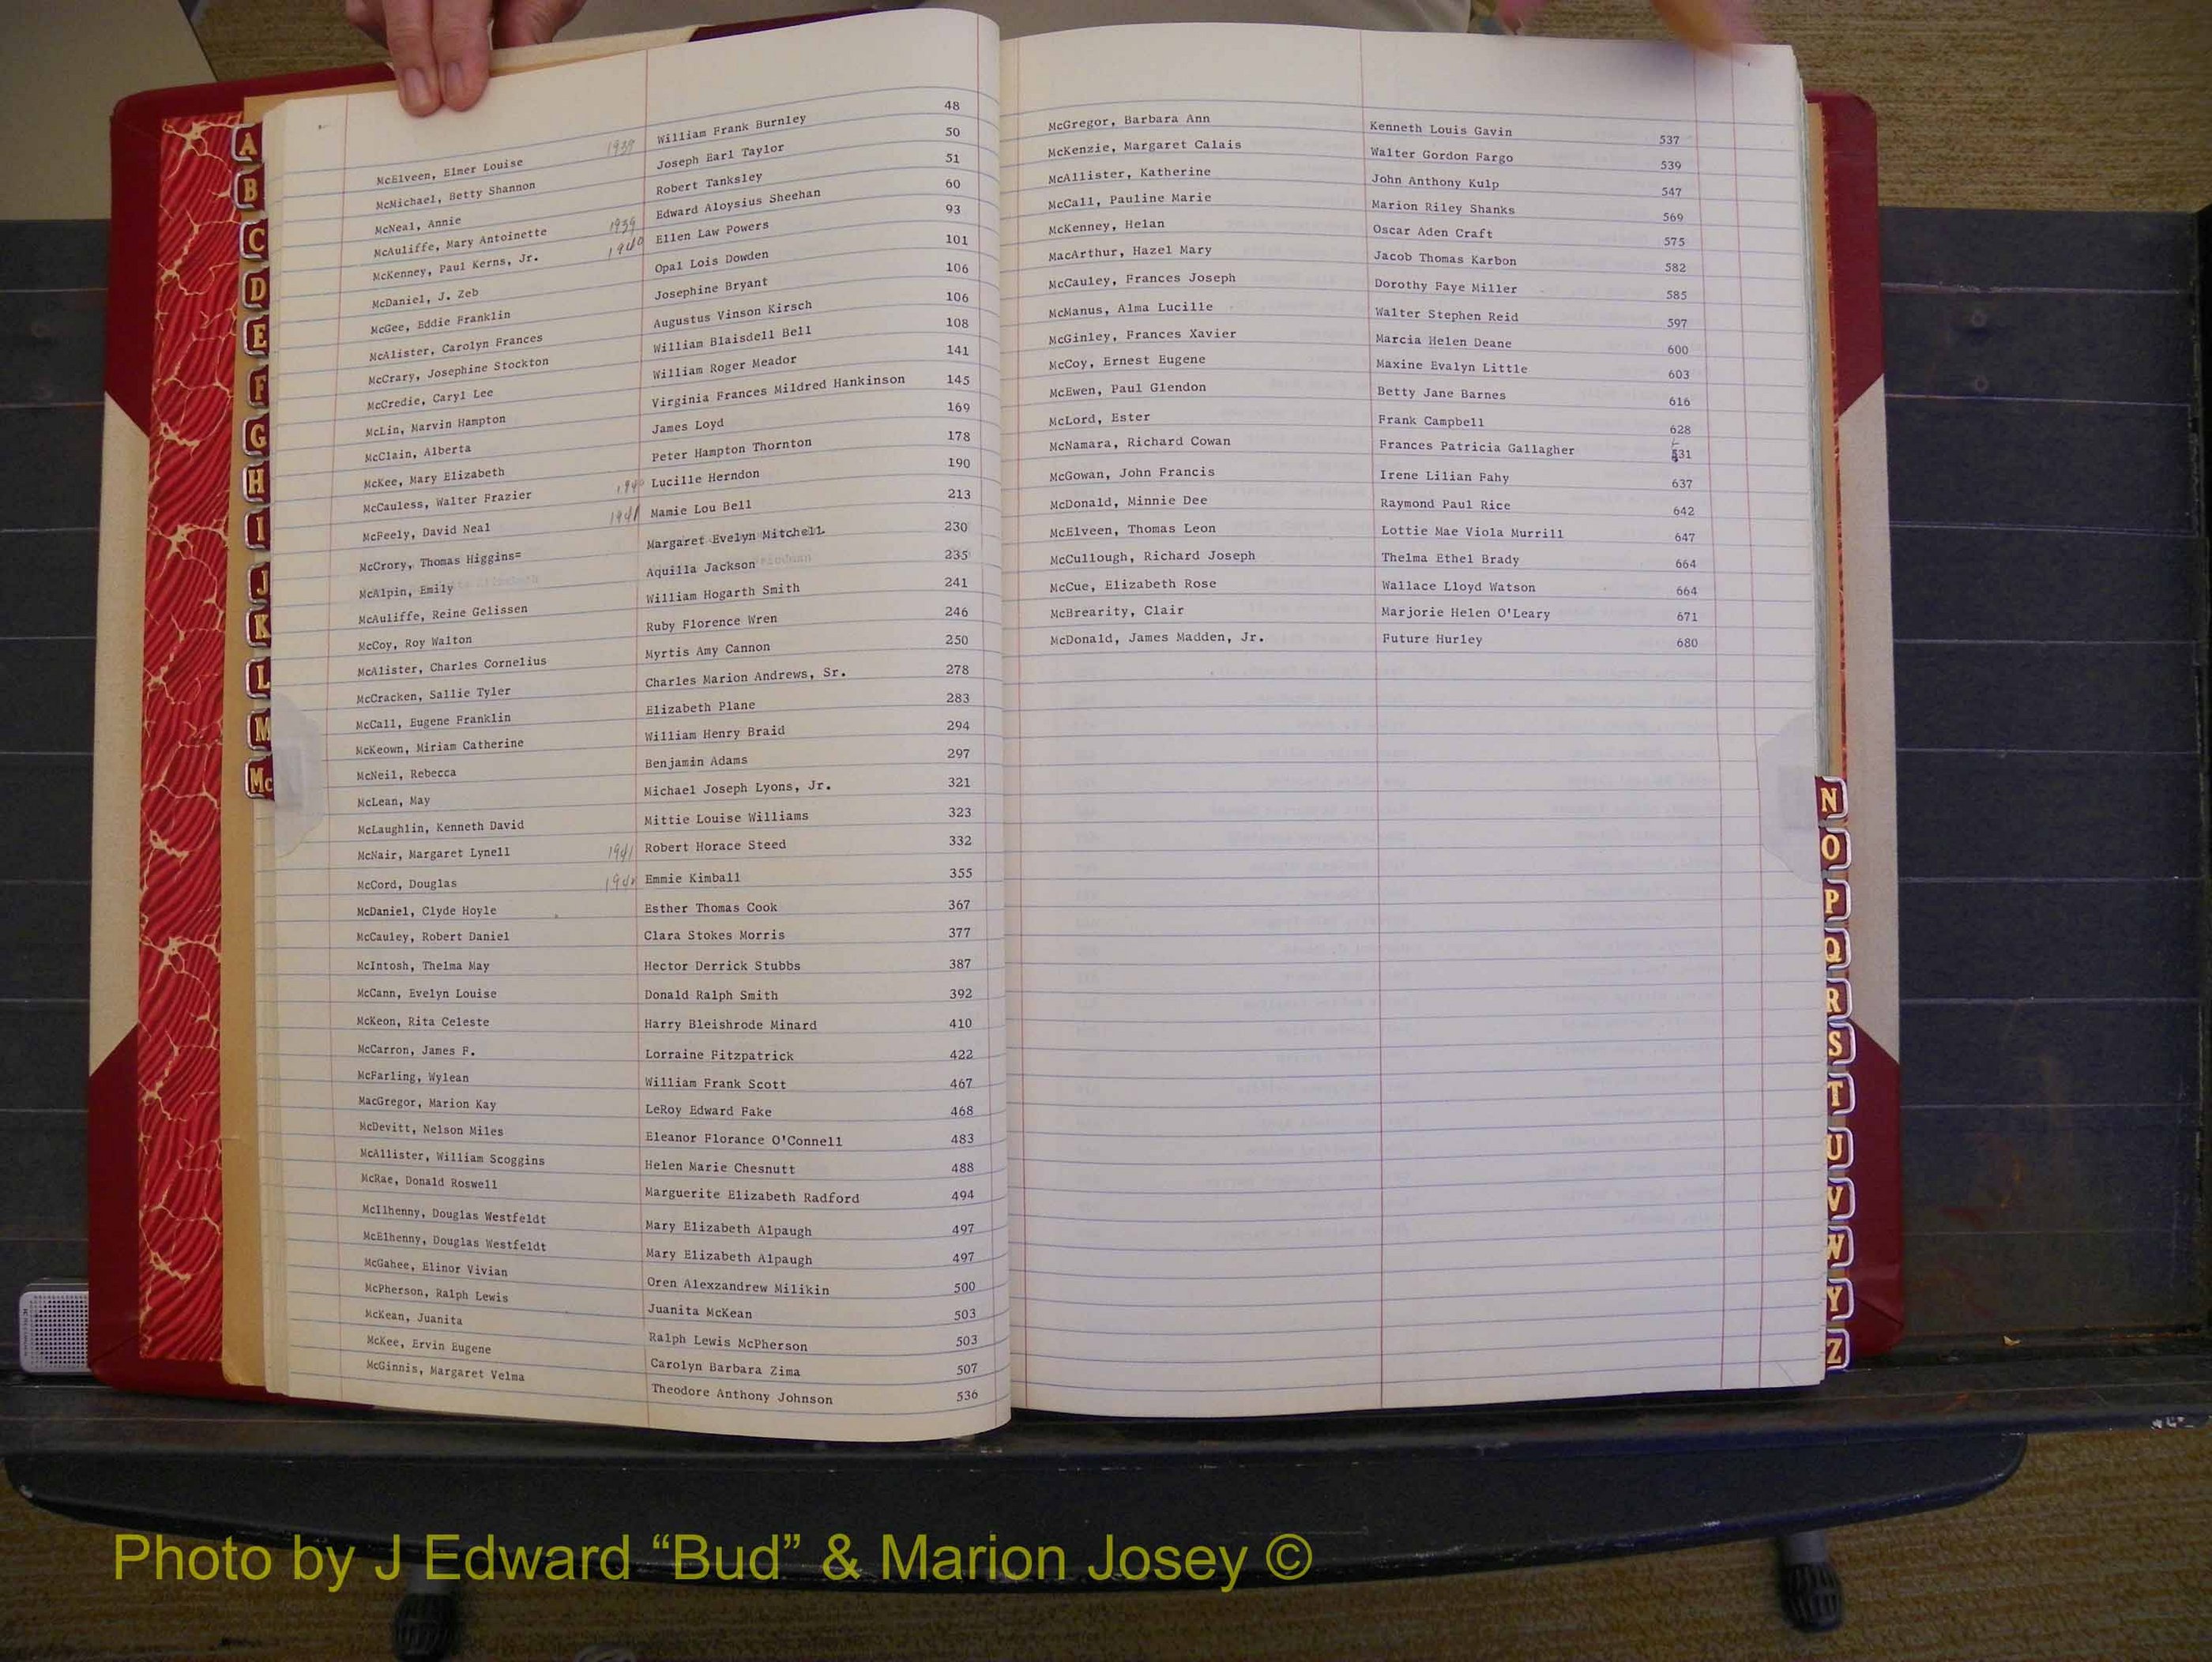 A
B
C
D
E
F
G
H
I
J
K
L
M
Mc
McElveen, Elmer Louise 1939 William Frank Burnley 48
McMichael, Betty Shannon Joseph Earl Taylor 50
McNeal, Annie Robert Tanksley 51
McAuliffe, Mary Antoinette 1939 Edward Aloysius Sheehan 60
McKenney, Paul Kerns, Jr. 1940 Ellen Law Powers 93
McDaniel, J. Zeb Opal Lois Dowden 101
McGee, Eddie Franklin Josephine Bryant 106
McAlister, Carolyn Frances Augustus Vinson Kirsch 106
McCrary, Josephine Stockton William Blaisdell Bell 108
McCredie, Caryl Lee William Roger Meador 141
McLin, Marvin Hampton Virginia Frances Mildred Hankinson 145
McClain, Alberta James Loyd 169
McKee, Mary Elizabeth Peter Hampton Thornton 178
McCauless, Walter Frazier 1940 Lucille Herndon 190
McFeely, David Neal 1941 Mamie Lou Bell 213
McCrory, Thomas Higgins= Margaret Evelyn Mitchell 230
McAlpin, Emily Aquilla Jackson 235
McAuliffe, Reine Gelissen William Hogarth Smith 241
McCoy, Roy Walton Ruby Florence Wren 246
McAlister, Charles Cornelius Myrtis Amy Cannon 250
McCracken, Sallie Tyler Charles Marion Andrews, Sr. 278
McCall, Eugene Franklin Elizabeth Plane 283
McKeown, Miriam Catherine William Henry Braid 294
McNeil, Rebecca Benjamin Adams 297
McLean, May Michael Joseph Lyons, Jr. 321
McLaughlin, Kenneth David Mittie Louise Williams 323
McNair, Margaret Lynell 1941 Robert Horace Steed 332
McCord, Douglas Emmie Kimball 355
McDaniel, Clyde Hoyle Esther Thomas Cook 367
McCauley, Robert Daniel Clara Stokes Morris 377
McIntosh, Thelma May Hector Derrick Stubbs 387
McCann, Evelyn Louise Donald Ralph Smith 392
McKeon, Rita Celeste Harry Bleishrode Minard 410
McCarron, James F. Lorraine Fitzpatrick 422
McFarling, Wylean William Frank Scott 467
MacGregor, Marion Kay LeRoy Edward Fake 468
McDevitt, Nelson Miles Eleanor Florance O'Connell 483
McAllister, William Scoggins Helen Marie Chesnutt 488
McRae, Donald Roswell Marguerite Elizabeth Radford 494
McIlhenny, Douglas Westfeldt Mary Elizabeth Alpaugh 497
McElhenny, Douglas Westfeldt Mary Elizabeth Alpaugh 497
McGahee, Elinor Vivian Oren Alexzandrew Milikin 500
McPherson, Ralph Lewis Juanita McKean 503
McKean, Juanita Ralph Lewis McPherson 503
McKee, Ervin Eugene Carolyn Barbara Zima 507
McGinnis, Margaret Velma Theodore Anthony Johnson 536
McGregor, Barbara Ann Kenneth Louis Gavin 537
McKenzie, Margaret Calais Walter Gordon Fargo 539
McAllister, Katherine John Anthony Kulp 547
McCall, Pauline Marie Marion Riley Shanks 569
McKenney, Helan Oscar Aden Craft 575
MacArthur, Hazel Mary Jacob Thomas Karbon 582
McCauley, Frances Joseph Dorothy Faye Miller 585
McManus, Alma Lucille Walter Stephen Reid 597
McGinley, Frances Xavier Marcia Helen Deane 600
McCoy, Ernest Eugene Maxine Evalyn Little 603
McEwen, Paul Glendon Betty Jane Barnes 616
McLord, Ester Frank Campbell 628
McNamara, Richard Cowan Frances Patricia Gallagher 631
McGowan, John Francis Irene Lilian Fahy 637
McDonald, Minnie Dee Raymond Paul Rice 642
McElveen, Thomas Leon Lottie Mae Viola Murrill 647
McCullough, Richard Joseph Thelma Ethel Brady 664
McCue, Elizabeth Rose Wallace Lloyd Watson 664
McBrearity, Clair Marjorie Helen O'Leary 671
McDonald, James Madden, Jr. Future Hurley 680
N
O
P
Q
R
S
T
U
V
W
Y
Z
Photo by J Edward “Bud” & Marion Josey ©